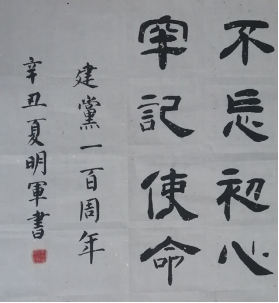 不忘初心
牢記使命
建黨一百周年
辛丑夏明軍書